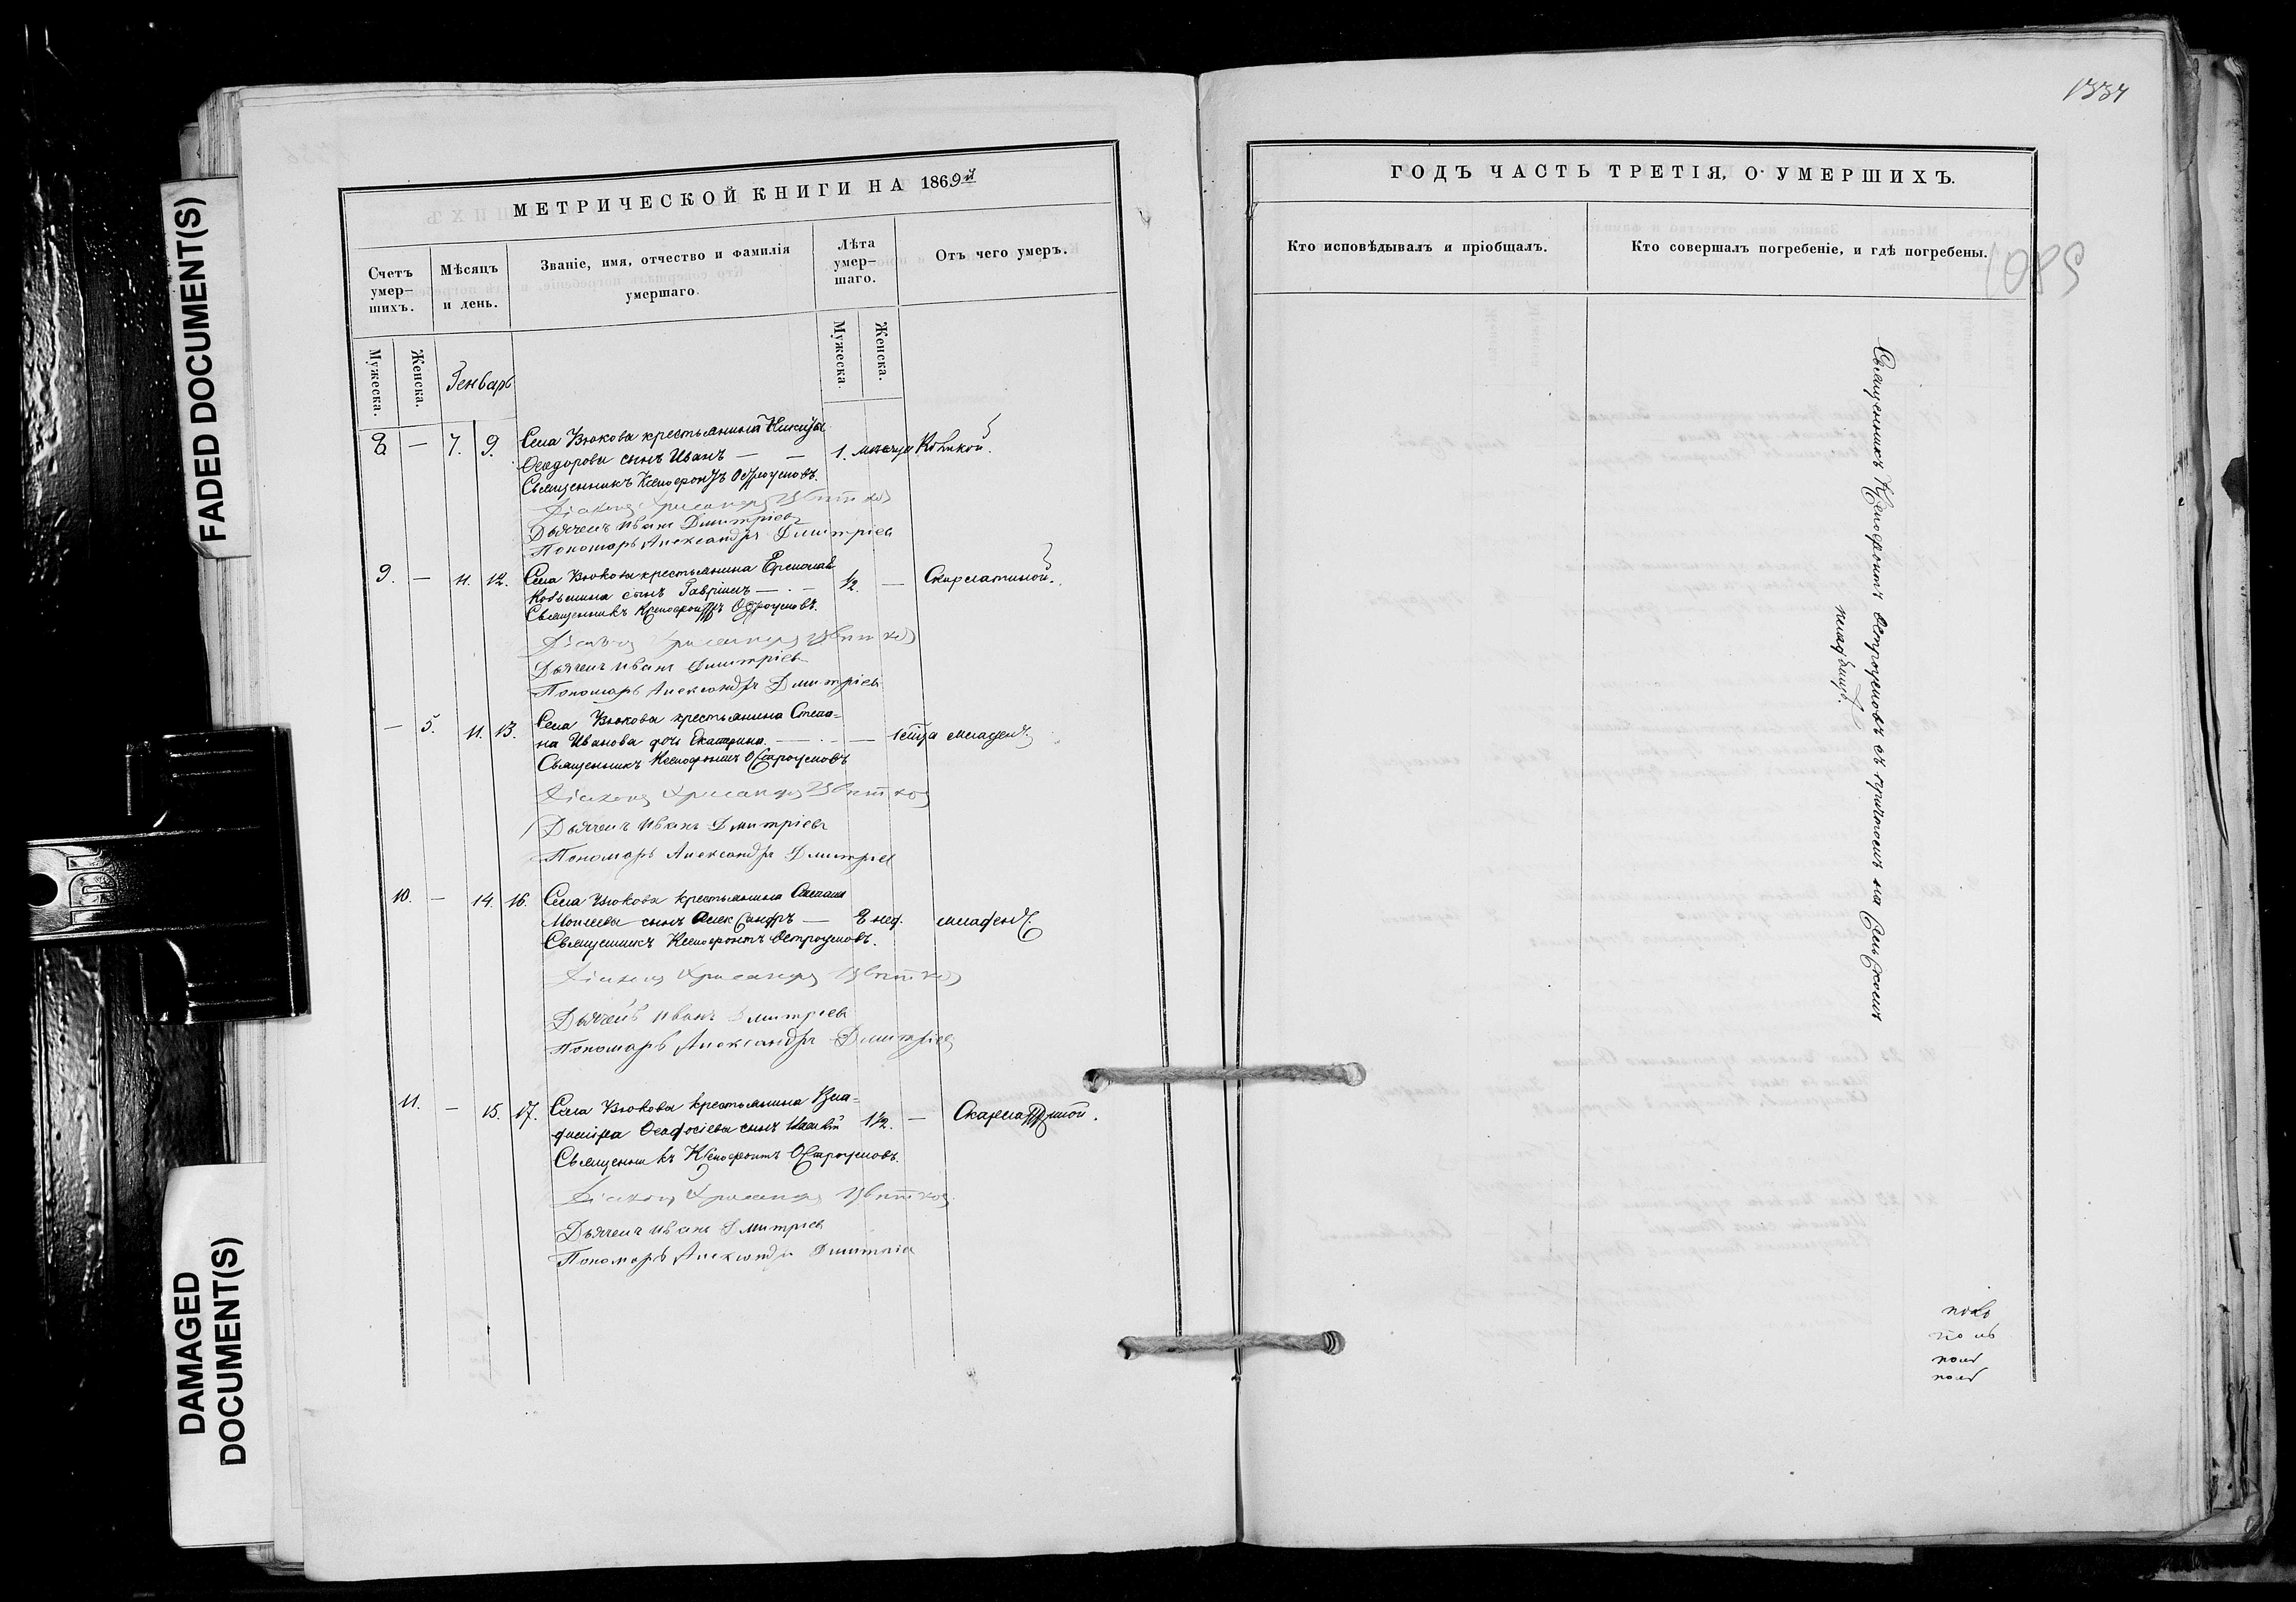 FADED DOCUMENT(S)
DAMAGED
DOCUMENT(S)
МЕТРИЧЕСКОЙ КНИГИ НА 1869й
Счетъ умер-шихъ.
Мѣсяцъ и день.
Званіе, имя, отчество и фамилія умершаго.
Лѣта умер-шаго.
Отъ чего умеръ.
Мужеска.
Женска.
Генварь
Мужеска.
Женска.
8 — 7. 9. Села Вьюкова крестьянина Никиты
Ѳеодорова сынъ Иванъ — — 1. месяца Коликой.
Священникъ Ксенофонтъ Остроумовъ.
Діаконъ Хрисанфъ
Дьячекъ Иванъ Дмитріевъ
Пономарь Александръ Дмитріевъ
9. — 11. 12. Села Вьюкова крестьянина Ермолая
Козьмина сынъ Гавріилъ — . — 1/2. — Скарлатиной.
Священникъ Ксенофонтъ Остроумовъ.
Діаконъ Хрисанфъ
Дьячекъ Иванъ Дмитріевъ
Пономарь Александръ Дмитріевъ
— 5. 11. 13. Села Вьюкова крестьянина Степа-
на Иванова дочь Екатерина. — младенч.
Священникъ Ксенофонтъ Остроумовъ
Діаконъ Хрисанфъ
Дьячекъ Иванъ Дмитріевъ
Пономарь Александръ Дмитріев
10. — 14. 16. Села Вьюкова крестьянина Степана
Моисеева сынъ Александръ — 8 нед. младенч.
Священникъ Ксенофонтъ Остроумовъ.
Діаконъ Хрисанфъ
Дьячекъ Иванъ Дмитріевъ
Пономарь Александръ Дмитріевъ
11. — 15. 17. Села Вьюкова крестьянина Вла-
диміра Ѳеодосіева сынъ 1 1/2. — Скарлатиной.
Священникъ Ксенофонтъ Остроумовъ.
Діаконъ Хрисанфъ
Дьячекъ Иванъ Дмитріев
Пономарь Александръ Дмитріев
1334
ГОДЪ ЧАСТЬ ТРЕТІЯ, О УМЕРШИХЪ.
Кто исповѣдывалъ и пріобщалъ.
Кто совершалъ погребеніе, и гдѣ погребены.
Священникъ Ксенофонтъ Остроумовъ съ причтомъ на Сельскомъ
кладбищѣ.